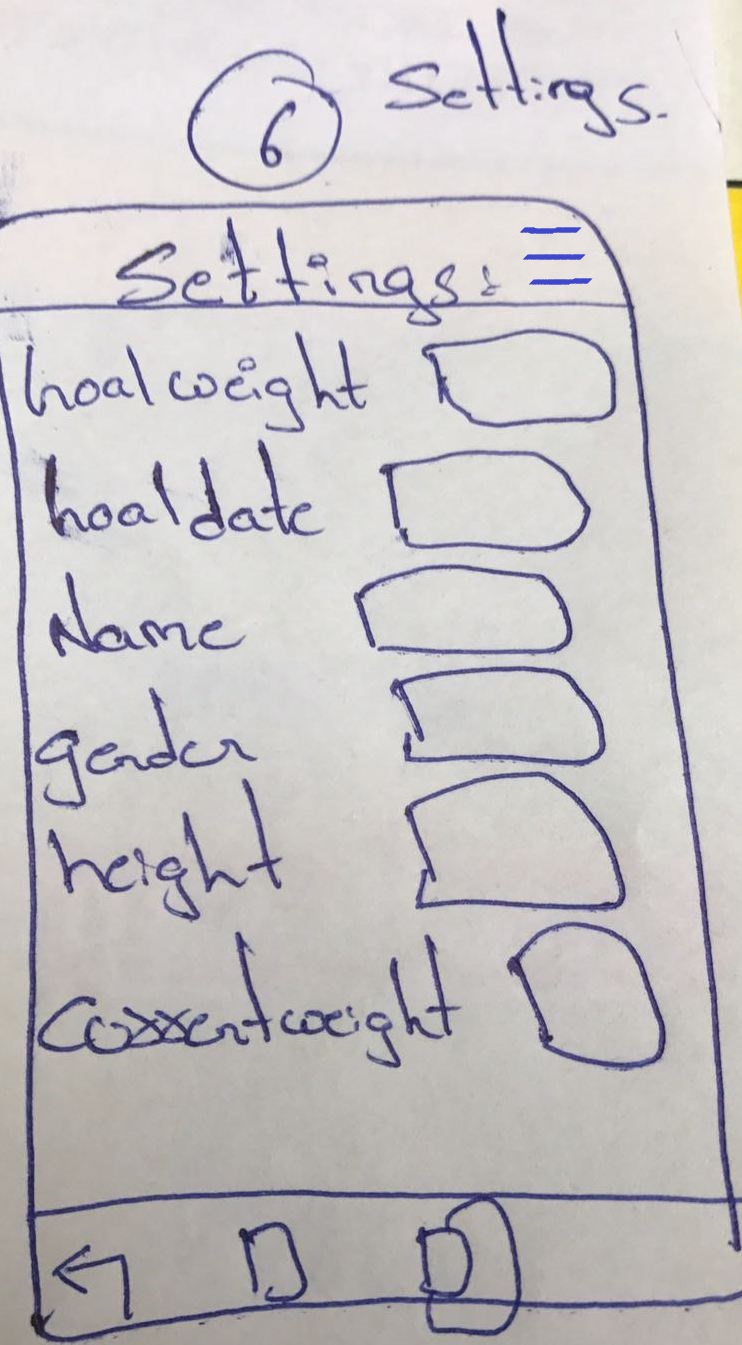 6 Settings.
Settings:
Goal weight
Goal date
Name
gender
height
Current weight